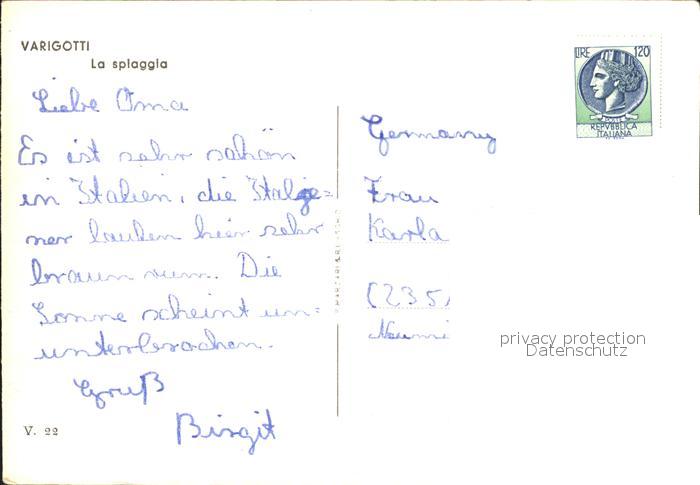 VARIGOTTI
La spiaggia
Liebe Oma
Es ist sehr schön
in Italien, die Italije=
ner laufen hier sehr
braun rum. Die
Sonne scheint un=
unterbrochen.
Gruß
Birgit
V. 22
LIRE 120
REPVBBLICA
ITALIANA
Germany
Frau
Karla
(235
privacy protection
Datenschutz